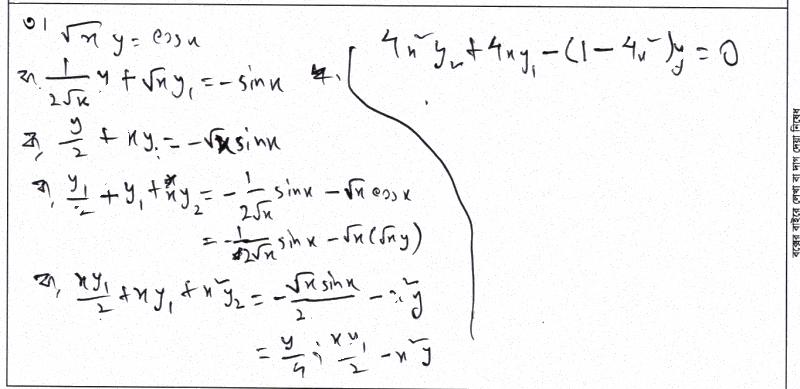 ৩। √x y = cosx
বা, 1/(2√x) y + √x y₁ = -sinx
বা, y/2 + xy₁ = -√x sinx
বা, y₁/2 + y₁ + xy₂ = - 1/(2√x) sinx - √x cosx
= - 1/(2√x) sinx - √x (√x y)
বা, xy₁/2 + xy₁ + x²y₂ = - √x sinx/2 - x²y
= y/4 + xy₁/2 - x²y
4x²y₂ + 4xy₁ - (1 - 4x²)y = 0
বক্সের বাইরে লেখা বা দাগ দেয়া নিষেধ